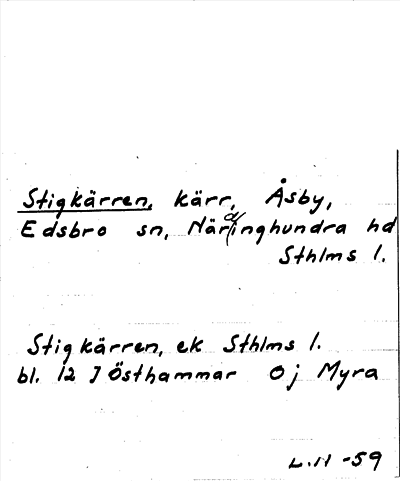 Stigkärren, kärr, Åsby,
Edsbro sn, Närdinghundra hd
Sthlms l.
Stigkärren, ek Sthlms l.
bl. 12 J Östhammar Öj Myra
L.H -59